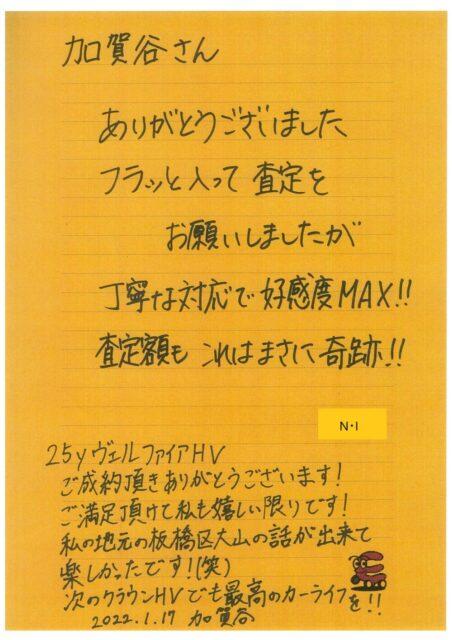 加賀谷さん
ありがとうございました
フラッと入って査定を
お願いしましたが
丁寧な対応で好感度MAX!!
査定額も これはまさに奇跡!!
N・I
25yヴェルファイアHV
ご成約頂きありがとうございます!
ご満足頂けて私も嬉しい限りです!
私の地元の板橋区大山の話が出来て
楽しかったです!(笑)
次のクラウンHVでも最高のカーライフを!!
2022.1.17 加賀谷